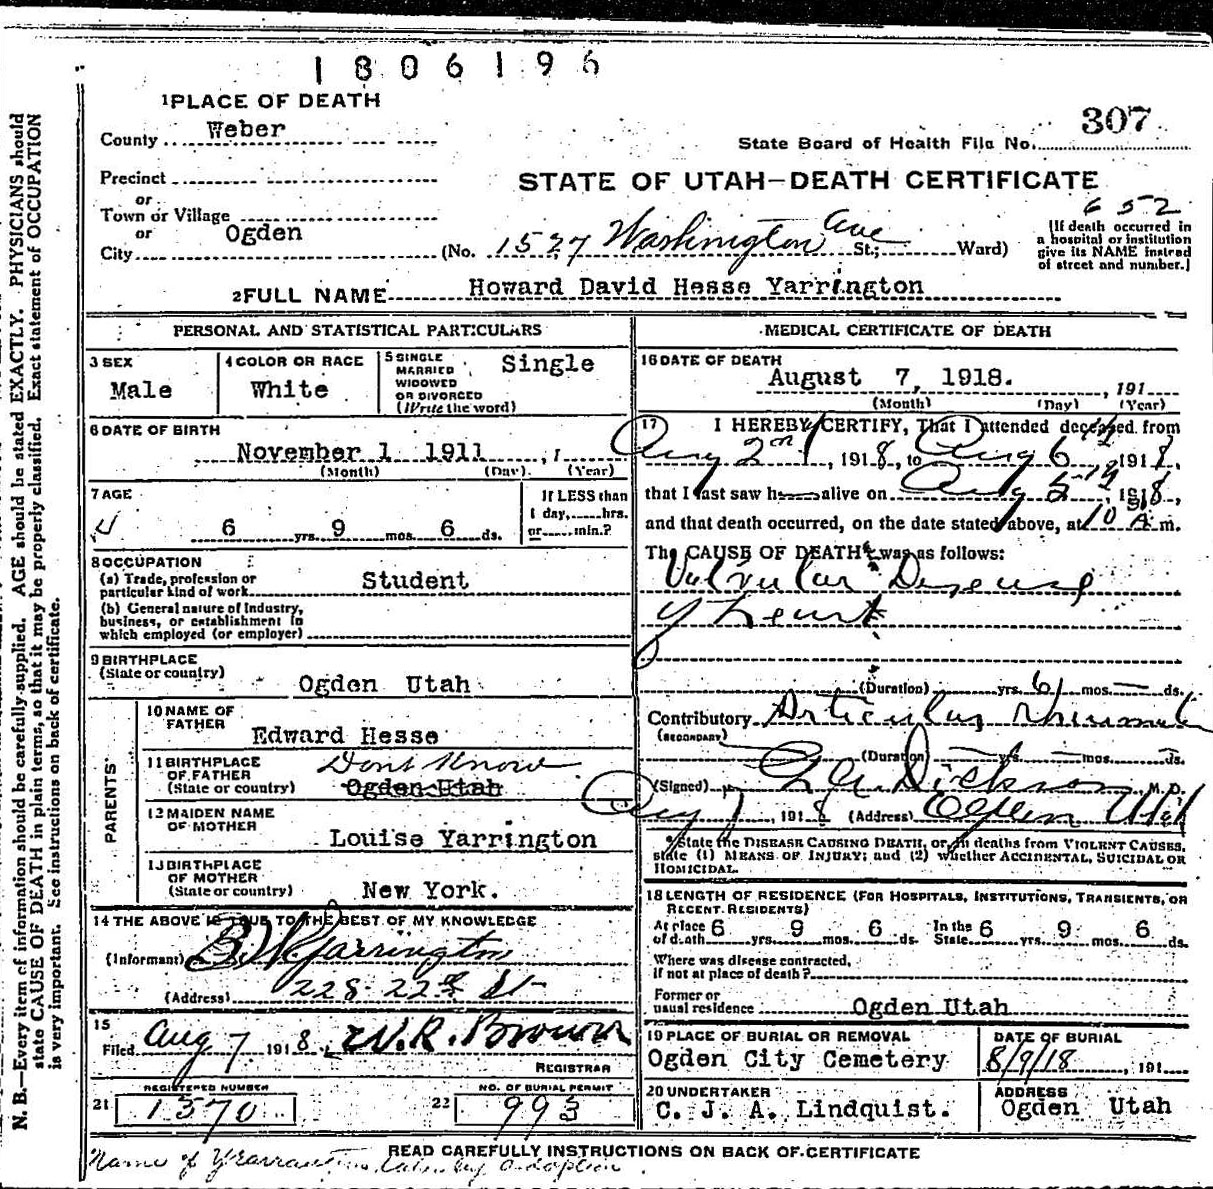 1806196
1 PLACE OF DEATH
County Weber
307
State Board of Health File No.
Precinct
STATE OF UTAH—DEATH CERTIFICATE
or
Town or Village
652
or
City Ogden (No. 1527 Washington Ave St.; Ward)
[If death occurred in
a hospital or institution
give its NAME instead
of street and number.]
2 FULL NAME Howard David Hesse Yarrington
PERSONAL AND STATISTICAL PARTICULARS
3 SEX
Male
4 COLOR OR RACE
White
5 SINGLE
MARRIED
WIDOWED
OR DIVORCED
(Write the word)
Single
6 DATE OF BIRTH
November 1 1911
(Month) (Day) (Year)
7 AGE
6 yrs. 9 mos. 6 ds.
If LESS than
1 day, hrs.
or min.?
8 OCCUPATION
(a) Trade, profession or
particular kind of work Student
(b) General nature of Industry,
business, or establishment in
which employed (or employer)
9 BIRTHPLACE
(State or country)
Ogden Utah
PARENTS
10 NAME OF
FATHER
Edward Hesse
11 BIRTHPLACE
OF FATHER
(State or country)
Dont Know
Ogden Utah
12 MAIDEN NAME
OF MOTHER
Louise Yarrington
13 BIRTHPLACE
OF MOTHER
(State or country) New York.
14 THE ABOVE IS TRUE TO THE BEST OF MY KNOWLEDGE
(Informant) Yarrington
(Address) 228 22nd St
15
Filed Aug 7 1918, W.R. Brown
REGISTRAR
REGISTERED NUMBER
21 1570
NO. OF BURIAL PERMIT
22 993
MEDICAL CERTIFICATE OF DEATH
16 DATE OF DEATH
August 7, 1918. , 191
(Month) (Day) (Year)
17 I HEREBY CERTIFY, That I attended deceased from
Aug 2nd, 1918, to Aug 6 1918,
that I last saw h alive on Aug 5, 1918,
and that death occurred, on the date stated above, at 10 A m.
The CAUSE OF DEATH* was as follows:
Valvular Disease
of heart
(Duration) yrs. 6 mos. — ds.
Contributory Articular
(SECONDARY)
(Duration) — yrs. — mos. — ds.
(Signed) Dickson M. D.
Aug 7, 1918 (Address) Ogden Utah
*State the DISEASE CAUSING DEATH, or, in deaths from VIOLENT CAUSES,
state (1) MEANS OF INJURY; and (2) whether ACCINENTAL, SUICIDAL OR
HOMICIDAL.
18 LENGTH OF RESIDENCE (FOR HOSPITALS, INSTITUTIONS, TRANSIENTS, OR
RECENT RESIDENTS)
At place 6 9 6 In the 6 9 6
of death yrs. mos. ds. State yrs. mos. ds.
Where was disease contracted,
if not at place of death?
Former or
usual residence Ogden Utah
19 PLACE OF BURIAL OR REMOVAL
Ogden City Cemetery
DATE OF BURIAL
8/9/18, 191
20 UNDERTAKER
C. J. A. Lindquist.
ADDRESS
Ogden Utah
READ CAREFULLY INSTRUCTIONS ON BACK OF CERTIFICATE
Name of by adoption.
N. B.—Every item of information should be carefully supplied. AGE should be stated EXACTLY. PHYSICIANS should
state CAUSE OF DEATH in plain terms, so that it may be properly classified. Exact statement of OCCUPATION
is very important. See instructions on back of certificate.